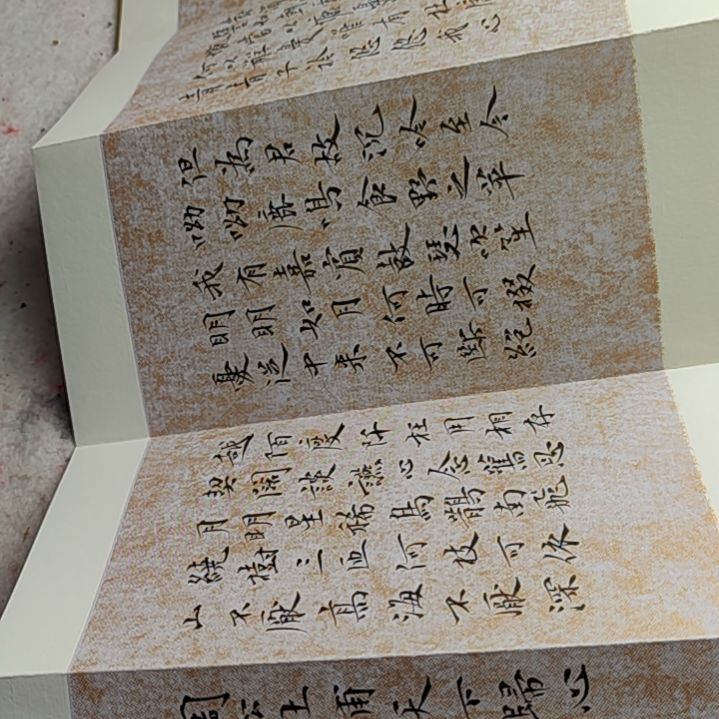 何以解憂唯有杜康
青青子衿悠悠我心
但為君故沉吟至今
呦呦鹿鳴食野之苹
我有嘉賓鼓瑟吹笙
明明如月何時可掇
憂從中来不可斷絕
越陌度阡枉用相存
契闊談讌心念舊恩
月明星稀烏鵲南飛
繞樹三匝何枝可依
山不厭高海不厭深
周公吐哺天下歸心